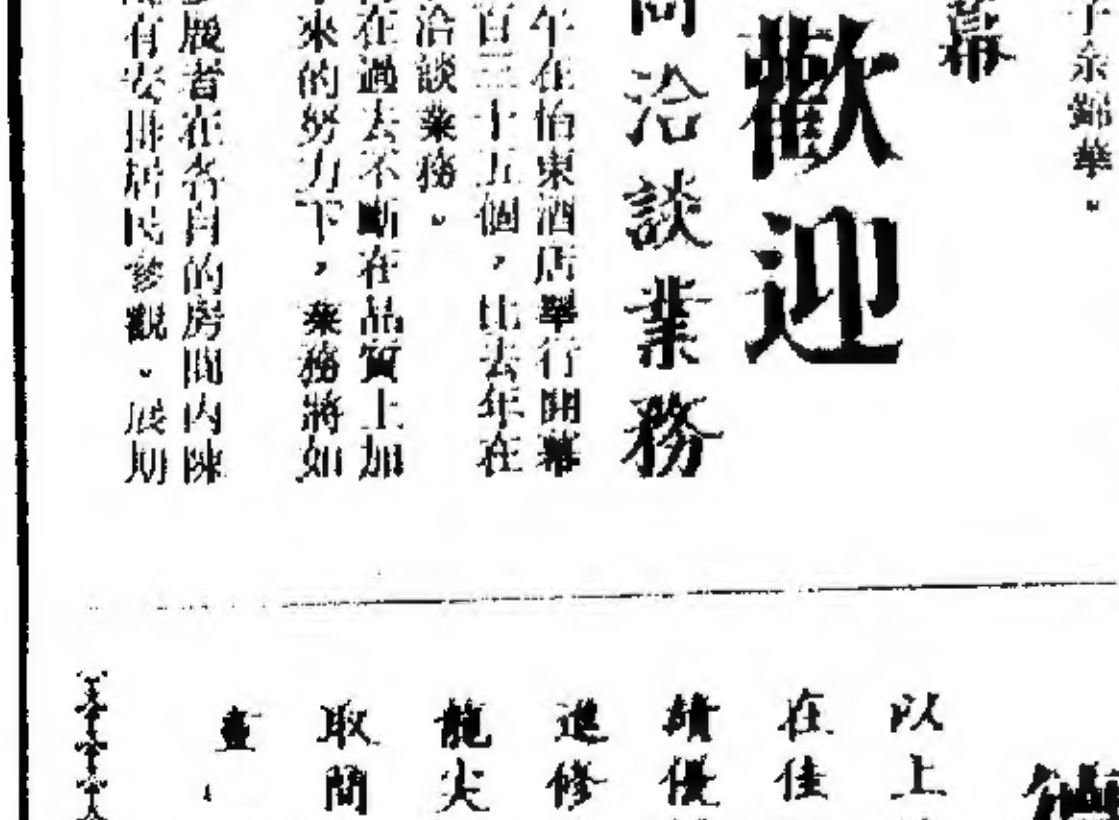 子余錦華。
幕
歡迎
商洽談業務
午在怡東酒店舉行開幕
百三十五個，比去年在
洽談業務。
在過去不斷在品質上加
來的努力下，業務將如
展者在各自的房間內陳
有安排居民參觀。展期
以上
在佳
績優
進修
龍尖
取簡